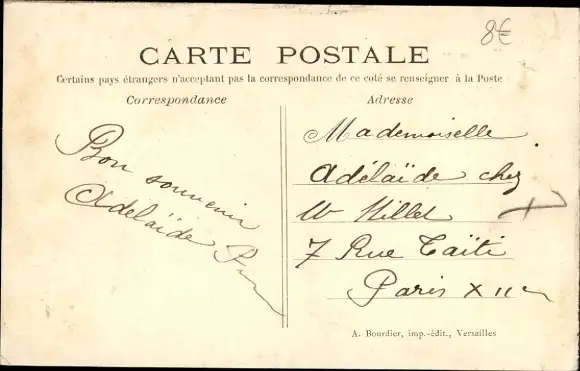 8€
CARTE POSTALE
Certains pays étrangers n'acceptant pas la correspondance de ce coté se renseigner à la Poste
Correspondance
Adresse
Bon souvenir
Adélaïde
Mademoiselle
Adélaïde chez
7 Rue Taïti
Paris XIIe
A. Bourdier, imp.-édit., Versailles